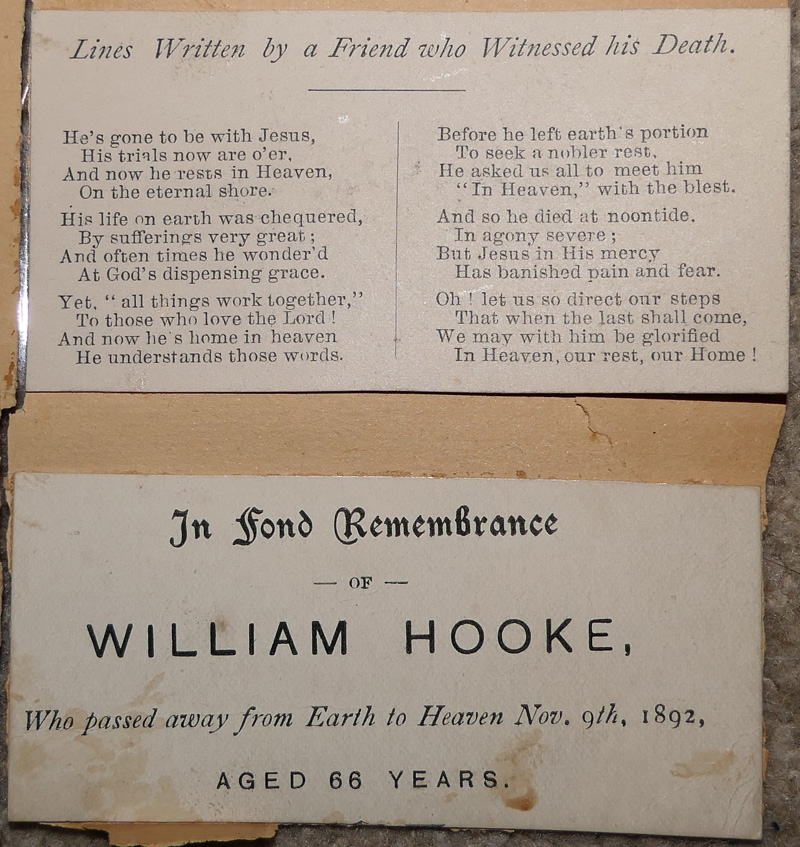 Lines Written by a Friend who Witnessed his Death.
He's gone to be with Jesus,
His trials now are o'er,
And now he rests in Heaven,
On the eternal shore.
His life on earth was chequered,
By sufferings very great;
And often times he wonder'd
At God's dispensing grace.
Yet, "all things work together,"
To those who love the Lord!
And now he's home in heaven
He understands those words.
Before he left earth's portion
To seek a nobler rest,
He asked us all to meet him
"In Heaven," with the blest.
And so he died at noontide,
In agony severe;
But Jesus in His mercy
Has banished pain and fear.
Oh! let us so direct our steps
That when the last shall come,
We may with him be glorified
In Heaven, our rest, our Home!
In Fond Remembrance
— OF —
WILLIAM HOOKE,
Who passed away from Earth to Heaven Nov. 9th, 1892,
AGED 66 YEARS.